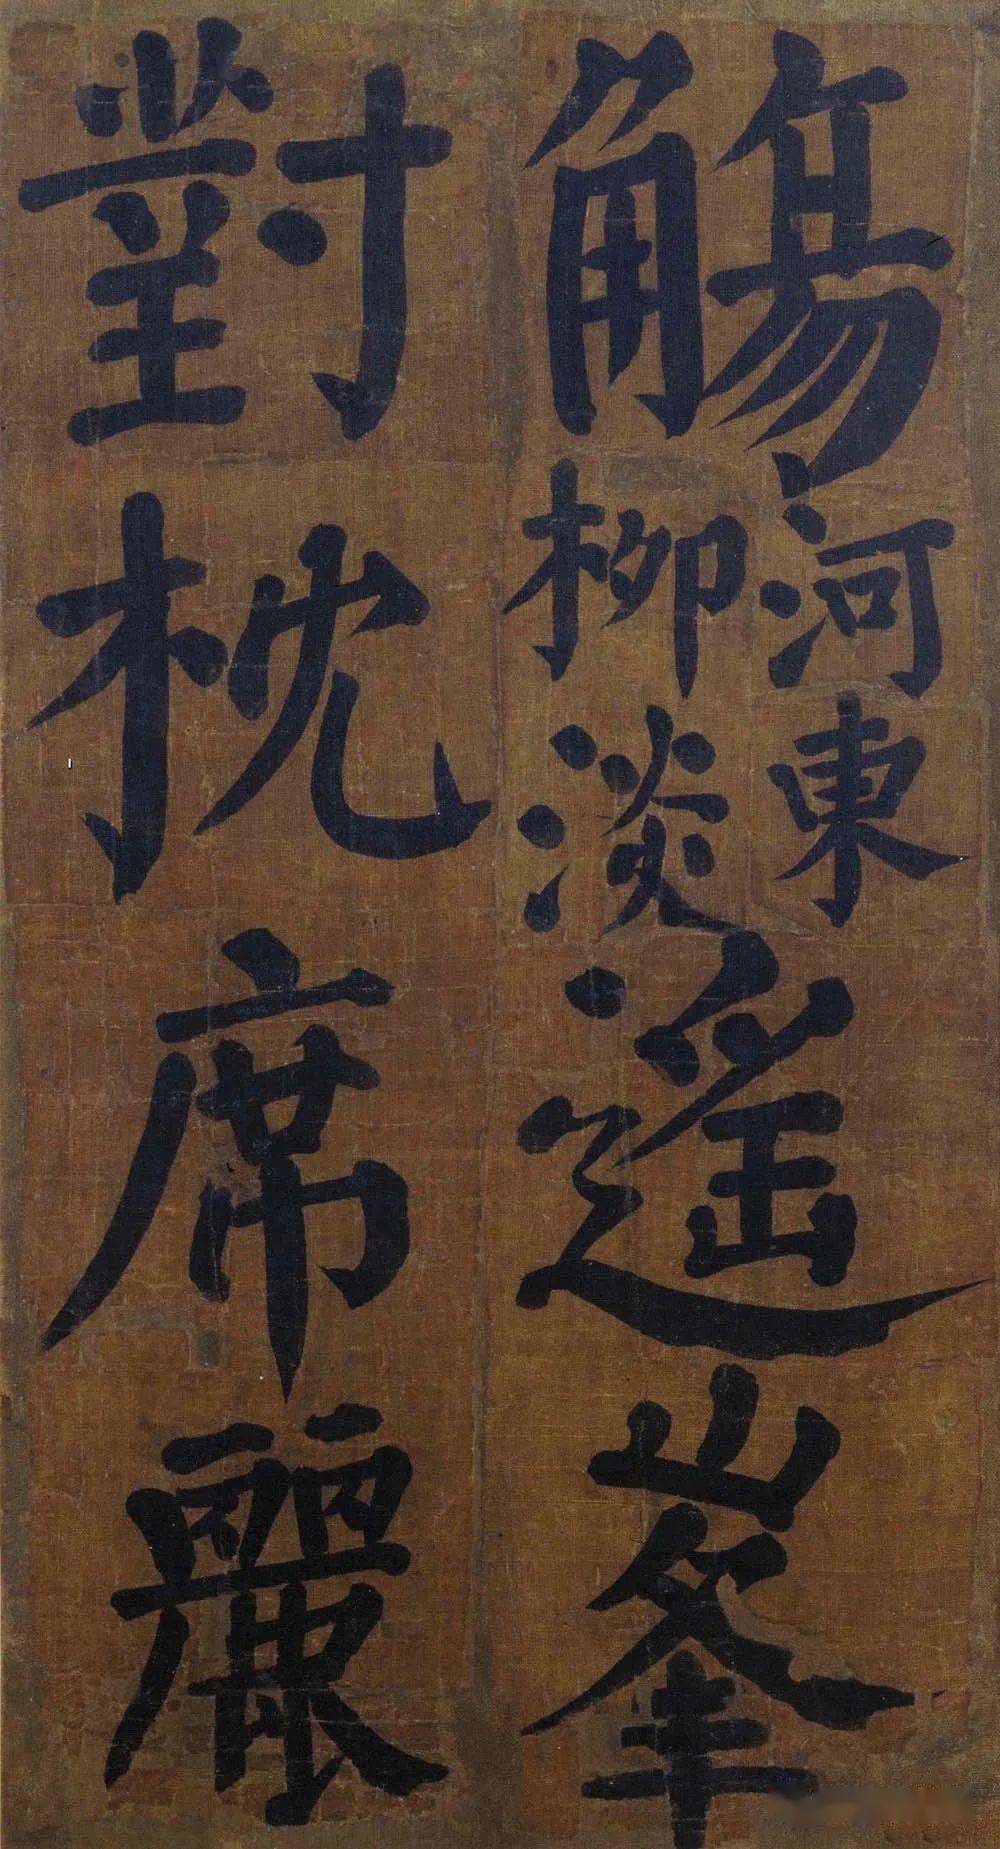 觴河東柳淡遙峯
對枕席麗